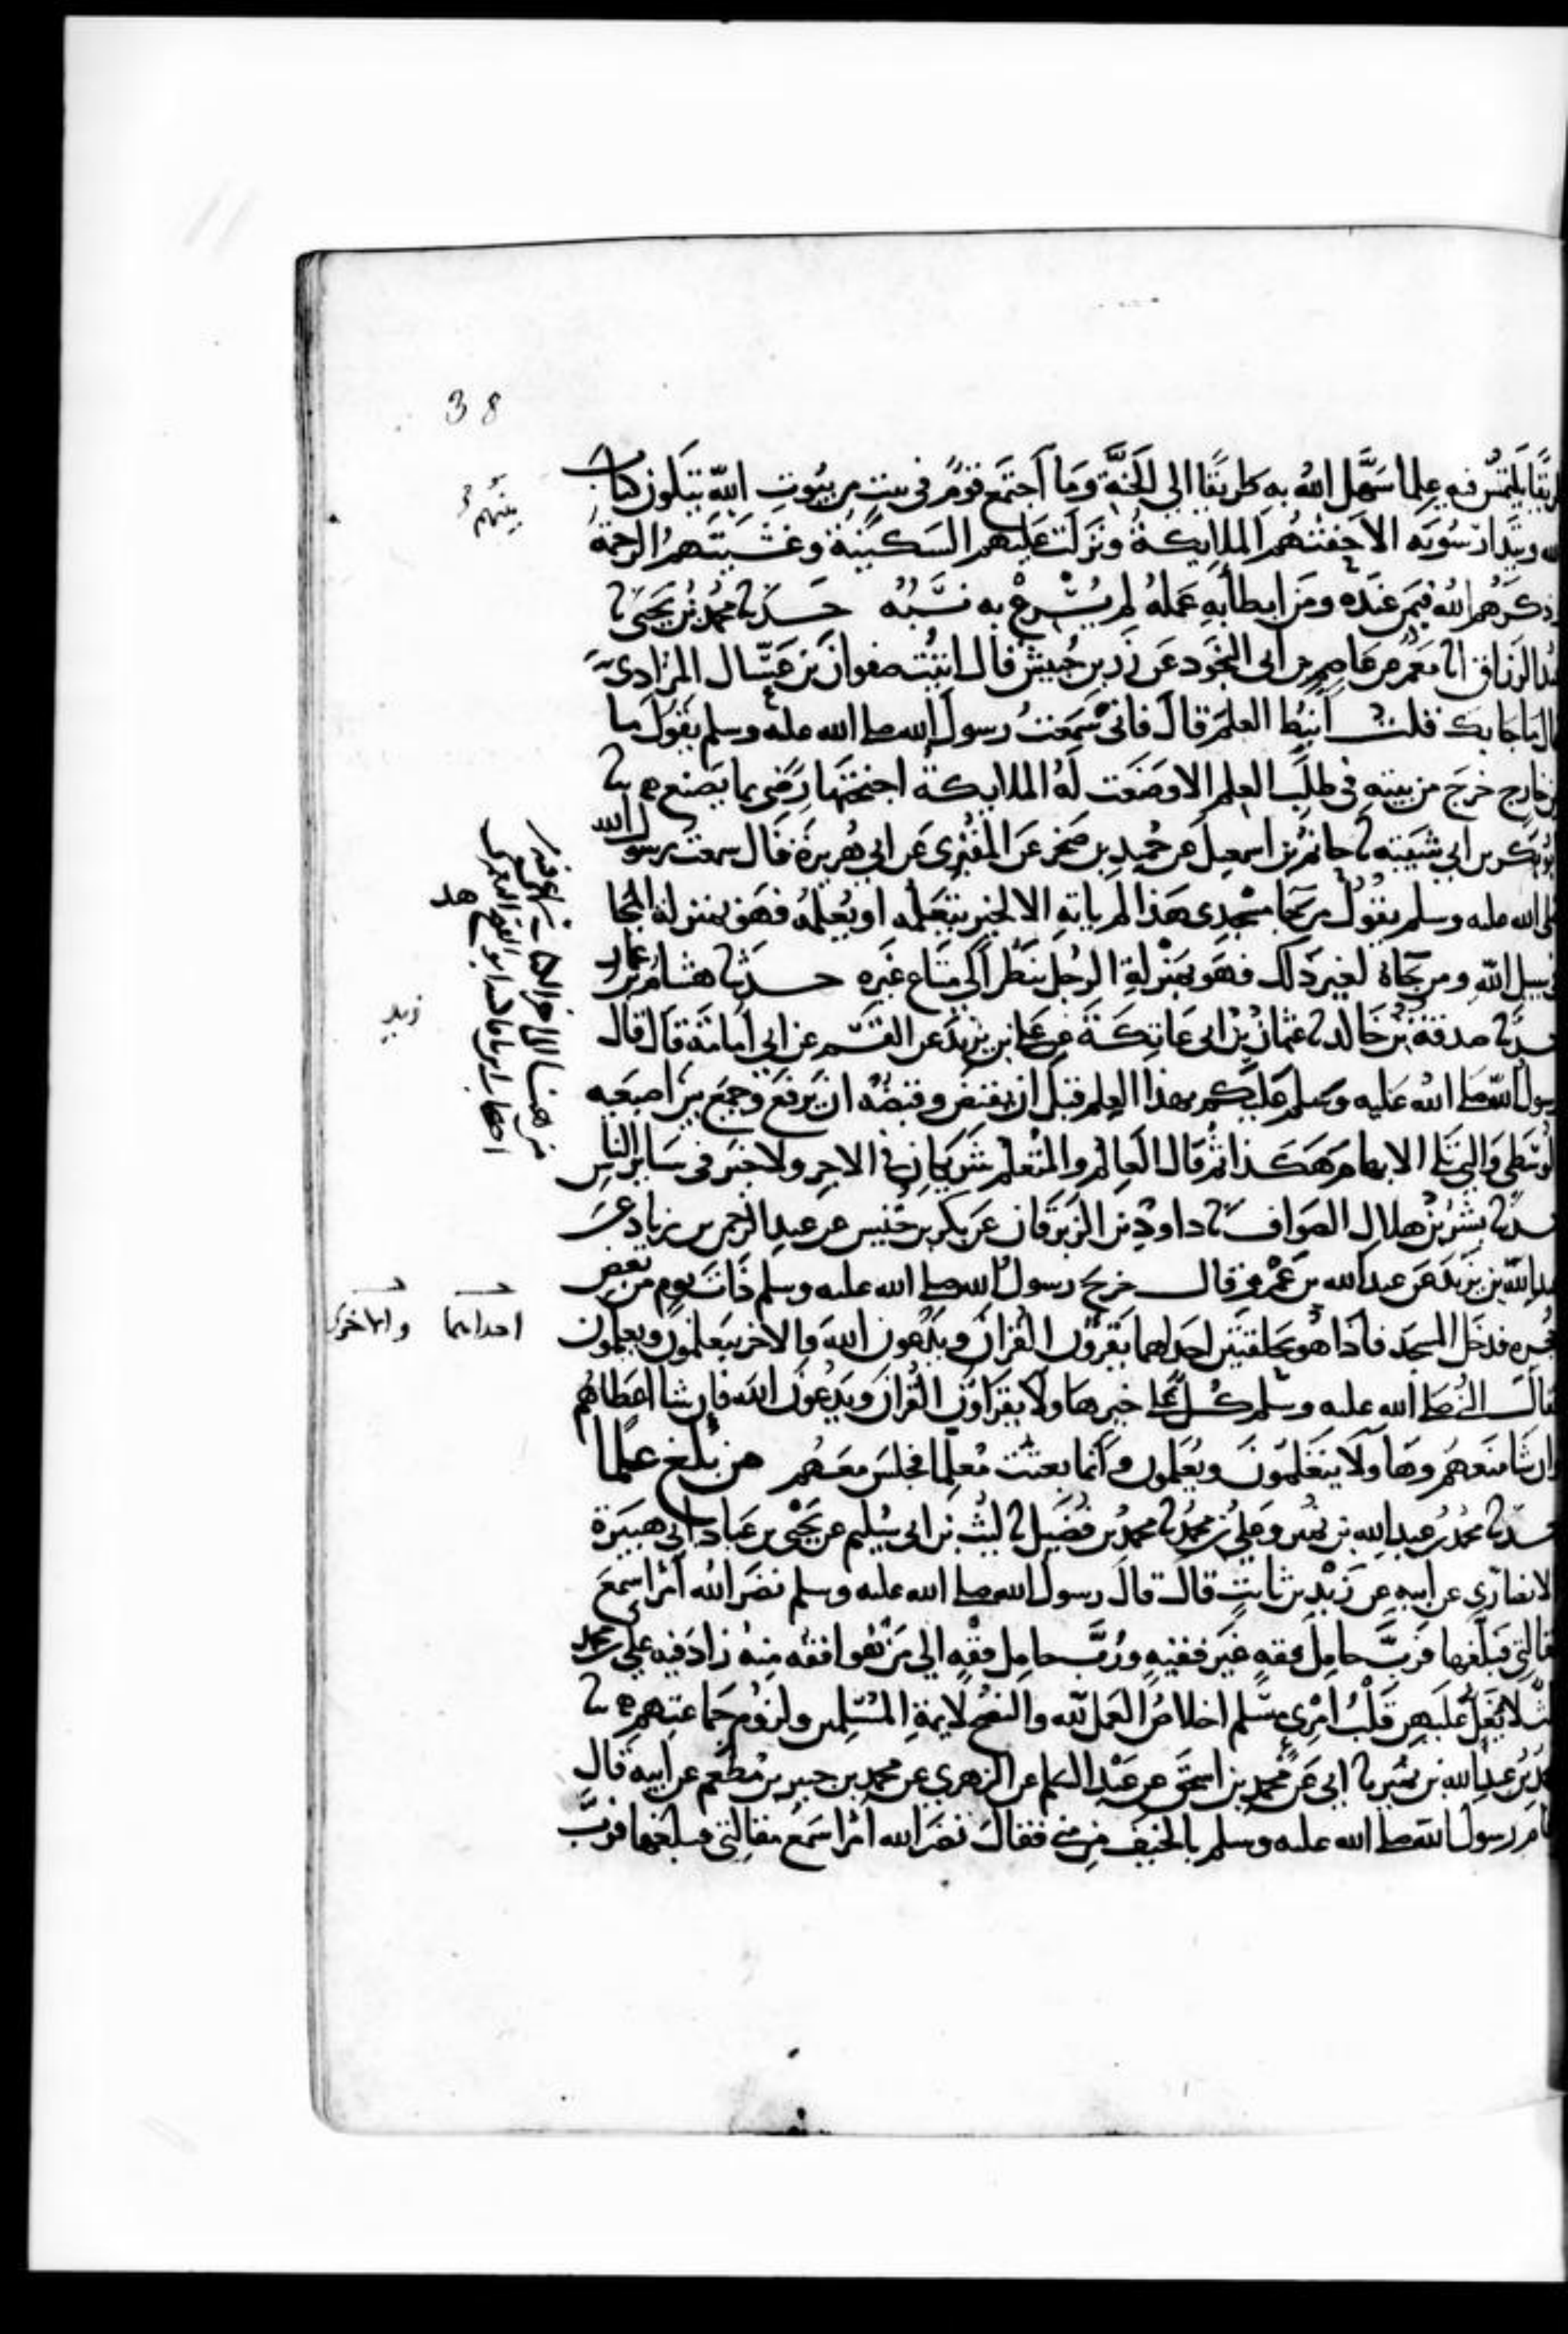 38
يقا يلتمس فيه علما سهل الله به طريقا الى الجنة وما اجتمع قوم في بيت من بيوت الله يتلون كتاب
الله ويتدارسونه الا حفتهم الملايكة ونزلت عليهم السكينة وغشيتهم الرحمة
بينهم
وذكرهم الله فيمن عنده ومن ابطا به عمله لم يسرع به نسبه حدثنا محمد بن يحيى نا
عبد الرزاق انا معمر عن عاصم بن ابي النجود عن زر بن حبيش قال اتيت صفوان بن عسال المرادي
قال ما جا بك قلت انبط العلم قال فاني سمعت رسول الله صلى الله عليه وسلم يقول ما
من خارج خرج من بيته في طلب العلم الا وضعت له الملايكة اجنحتها رضى بما يصنع نا
ابو بكر بن ابي شيبة نا حاتم بن اسمعيل عن حميد بن صخر عن المقبري عن ابي هريرة قال سمعت رسول الله
صلى الله عليه وسلم يقول من جا مسجدي هذا لم ياته الا لخير يتعلمه او يعلمه فهو بمنزلة المجا
في سبيل الله ومن جاه لغير ذلك فهو بمنزلة الرجل ينظر الى متاع غيره حدثنا هشام بن عمار
حدثنا صدقة بن خالد نا عثمان بن ابي عاتكة عن علي بن يزيد عن القسم عن ابي امامة قال قال
رسول الله صلى الله عليه وسلم عليكم بهذا العلم قبل ان يقبض وقبضه ان يرفع وجمع بين اصبعيه
الوسطى والتي تلي الابهام هكذا ثم قال العالم والمتعلم شريكان في الاجر ولا خير في ساير الناس
حدثنا بشر بن هلال الصواف نا داود بن الزبرقان عن بكر بن خنيس عن عبد الرحمن بن زياد عن
عبد الله بن يزيد عن عبد الله بن عمرو قال خرج رسول الله صلى الله عليه وسلم ذات يوم من بعض
حجره فدخل المسجد فاذا هو بحلقتين احداهما يقرون القران ويدعون الله والاخر يتعلمون ويعلمون
احداهما والاخرى
فقال النبي صلى الله عليه وسلم كل على خير هاولا يقراون القران ويدعون الله فان شا اعطاهم
وان شا منعهم وهاولا يتعلمون ويعلمون وانما بعثت معلما فجلس معهم من بلغ علما
حدثنا محمد بن عبد الله بن نمير وعلي بن محمد نا محمد بن فضيل نا ليث بن ابي سليم عن يحيى بن عباد ابي هبيرة
الانصاري عن ابيه عن زيد بن ثابت قال قال رسول الله صلى الله عليه وسلم نضر الله امرا سمع
مقالتي فبلغها فرب حامل فقه غير فقيه ورب حامل فقه الى من هو افقه منه زاد فيه علي بن محمد
ثلث لا يغل عليهن قلب امرئ مسلم اخلاص العمل لله والنصح لايمة المسلمين ولزوم جماعتهم نا
محمد بن عبد الله بن نمير نا ابي عن محمد بن اسحق عن عبد السلم عن الزهري عن محمد بن جبير بن مطعم عن ابيه قال
قام رسول الله صلى الله عليه وسلم بالخيف من منى فقال نضر الله امرا سمع مقالتي فبلغها فرب